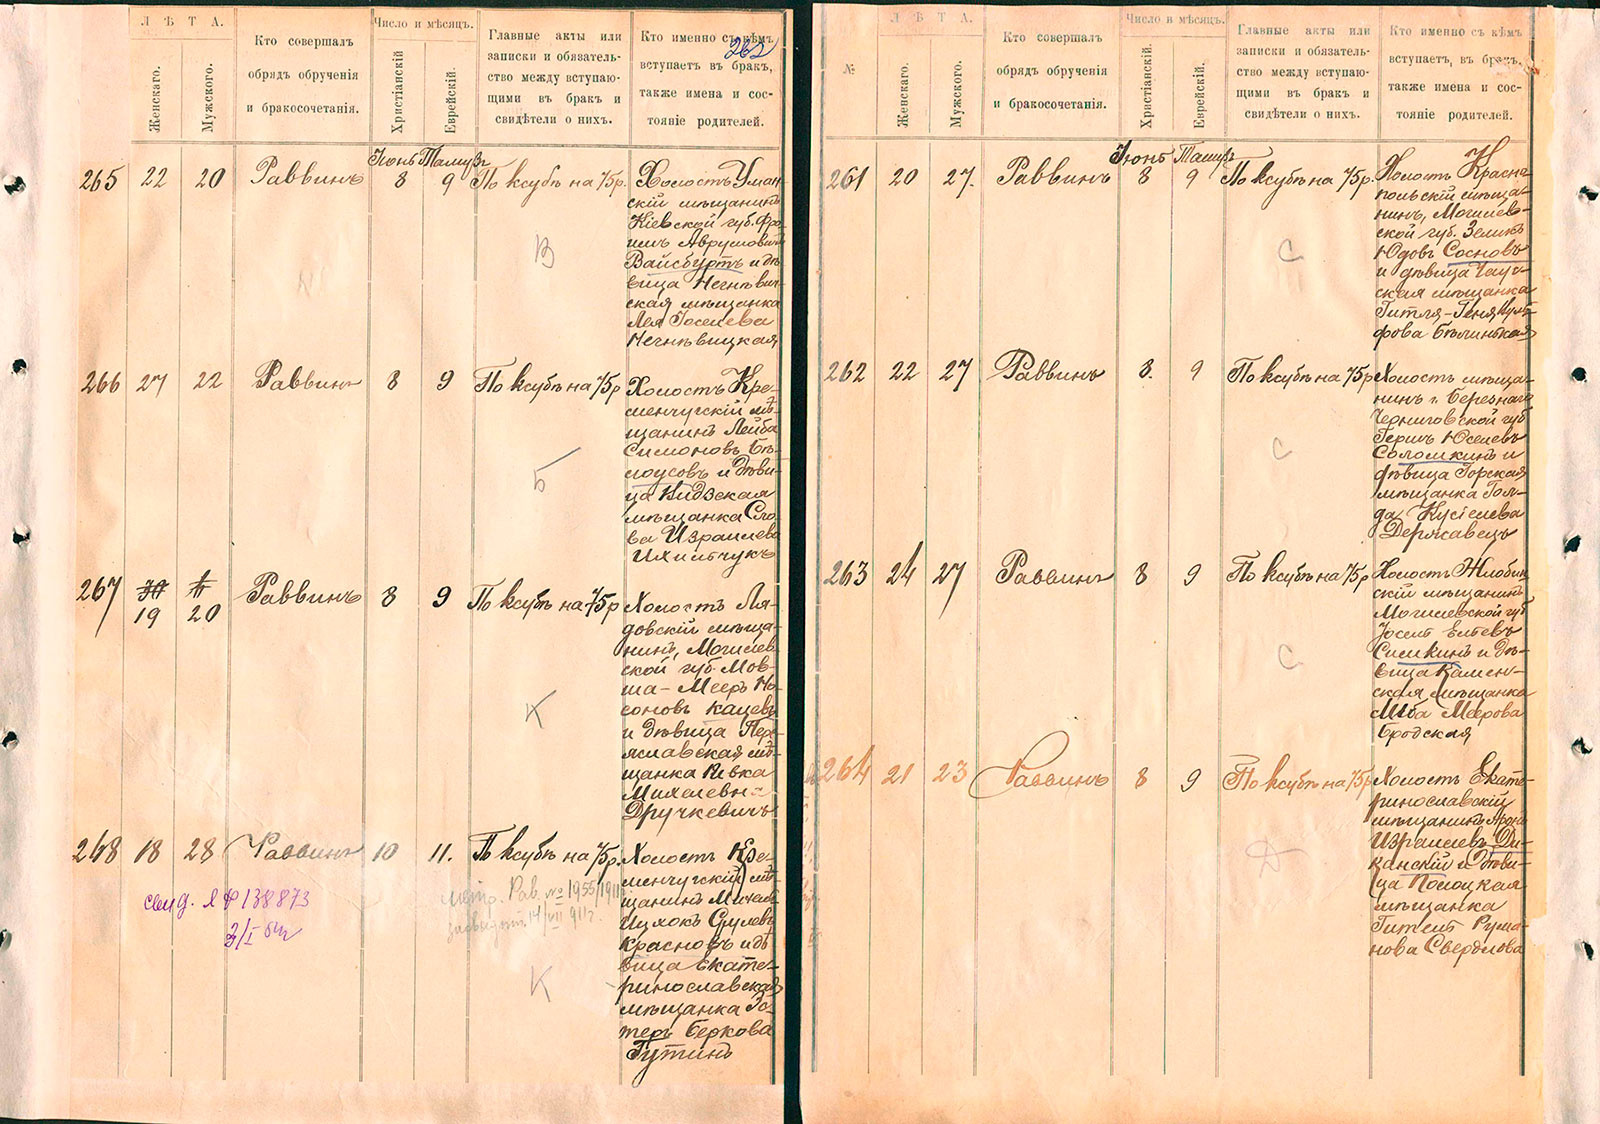 Л Ѣ Т А.
Женскаго.
Мужского.
Кто совершалъ
обрядъ обрученія
и бракосочетанія.
Число и мѣсяцъ.
Христіанскій
Еврейскій.
Главные акты или
записки и обязатель-
ство между вступаю-
щими въ бракъ и
свидѣтели о нихъ.
Кто именно съ кѣмъ
вступаетъ въ бракъ,
также имена и сос-
тояніе родителей.
262
Іюнь Тамузъ
265 22 20 Раввинъ 8 9 По ксубѣ на 75 р.
Холостъ Уман
скій мѣщанинъ
Кіевской губ. Фро-
имъ Аврумовичъ
Вайсбуртъ и дѣ
вица Негнѣвиц-
ская мѣщанка
Лея Іоселева
Негнѣвицкая
В
266 27 22 Раввинъ 8 9 По ксубѣ на 75 р
Холостъ Кре-
менчугскій мѣ-
щанинъ Лейба
Симоновъ Бѣ-
лоусовъ и дѣви-
ца Видзская
мѣщанка Сло-
ва Израилева
Ихильчукъ
Б
267 19 20 Раввинъ 8 9 По ксубѣ на 75 р
Холостъ Ля-
довскій мѣща-
нинъ, Могилев-
ской губ. Мов-
ша-Мееръ Но-
соновъ Кацевъ
и дѣвица Пере-
яславская мѣ-
щанка Ривка
Михелевна
Друкевичъ
К
268 18 28 Раввинъ 10 11. По ксубѣ на 75 р.
Холостъ Кре-
менчугскій мѣ-
щанинъ Михель
Ицхокъ Срулевъ
Красновъ и дѣ
вица Екате-
ринославская
мѣщанка Эс-
теръ Беркова
Гутинъ
свид. 138873
Рав. № 1955/1911
14/VII 911 г.
К
№
Л Ѣ Т А.
Женскаго.
Мужского.
Кто совершалъ
обрядъ обрученія
и бракосочетанія.
Число и мѣсяцъ.
Христіанскій
Еврейскій.
Главные акты или
записки и обязатель-
ство между вступаю-
щими въ бракъ и
свидѣтели о нихъ.
Кто именно съ кѣмъ
вступаетъ, въ бракъ,
также имена и сос-
тояніе родителей.
Іюнь Тамузъ
261 20 27. Раввинъ 8 9 По ксубѣ на 75 р.
Холостъ Красно
польскій мѣща-
нинъ, Могилев-
ской губ. Зеликъ
Юдовъ Сосновъ
и дѣвица Чаус-
ская мѣщанка
Гитля-Геня
фрова Бѣлинькая
С
262 22 27 Раввинъ 8. 9 По ксубѣ на 75 р
Холостъ мѣща-
нинъ г. Березнаго
Черниговской губ
Гершъ Юселевъ
Соломкинъ и
дѣвица Горская
мѣщанка Голь-
да Кусіелева
Державецъ
С
263 24 27 Раввинъ 8 9 По ксубѣ на 75 р
Холостъ Жлобин
скій мѣщанинъ
Могилевской губ
Іосель Ельевъ
Симкинъ и дѣ-
вица Камен-
ская мѣщанка
Меерова
Бродская
С
264 21 23 Раввинъ 8 9 По ксубѣ на 75 р
Холостъ Екате-
ринославскій
мѣщанинъ Аронъ
Израилевъ Ди-
канскій и дѣви-
ца Полоцкая
мѣщанка
Гитель Рума-
нова Свердлова
Д